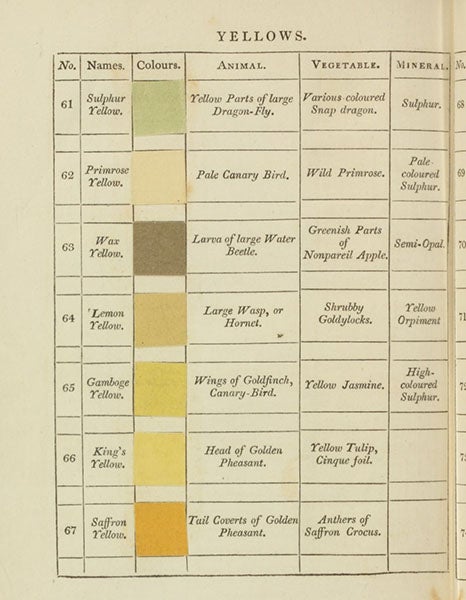 YELLOWS.
No. Names. Colours. ANIMAL. VEGETABLE. MINERAL. No.
61 Sulphur Yellow. Yellow Parts of large Dragon-Fly. Various coloured Snap dragon. Sulphur. 68
62 Primrose Yellow. Pale Canary Bird. Wild Primrose. Pale-coloured Sulphur. 69
63 Wax Yellow. Larva of large Water Beetle. Greenish Parts of Nonpareil Apple. Semi-Opal. 70
64 Lemon Yellow. Large Wasp, or Hornet. Shrubby Goldylocks. Yellow Orpiment 71
65 Gamboge Yellow. Wings of Goldfinch, Canary-Bird. Yellow Jasmine. High-coloured Sulphur.
66 King's Yellow. Head of Golden Pheasant. Yellow Tulip, Cinque foil.
67 Saffron Yellow. Tail Coverts of Golden Pheasant. Anthers of Saffron Crocus.